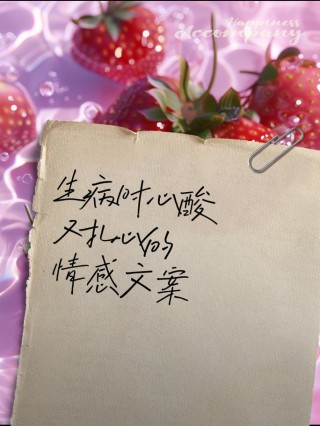 Happiness
accompany
生病时心酸
又扎心的
情感文案